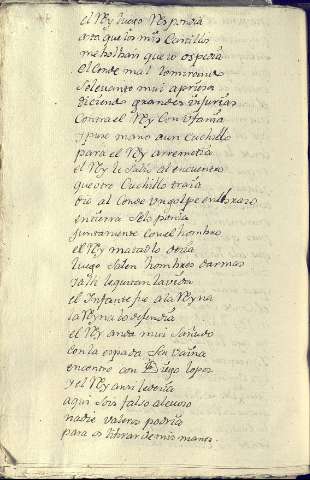 el Rey luego Respondia
ara que los mis Castillos
me holbais que vo os pedia
el Conde mal lo mirando
se levanto mui apriesa
diciendo grandes injurias
Contra el Rey Con ufania
y puso mano a un Cuchillo
para el Rey arremetia
el Rey le salio al encuentro
que otro Cuchillo traia
dio al Conde un golpe en el brazo
en tierra se lo ponia
juntamente con el hombro
el Rey matadlo decia
luego salen hombres darmas
y alli le quitan la vida
el Infante fue a la Reyna
la Reyna lo defendia
el Rey anda mui sañudo
con la espada sin vaina
encontro con Diego lopes
y el Rey ansi le decia
aqui sois falso alevoso
nadie valeros podria
para os librar de mis manos